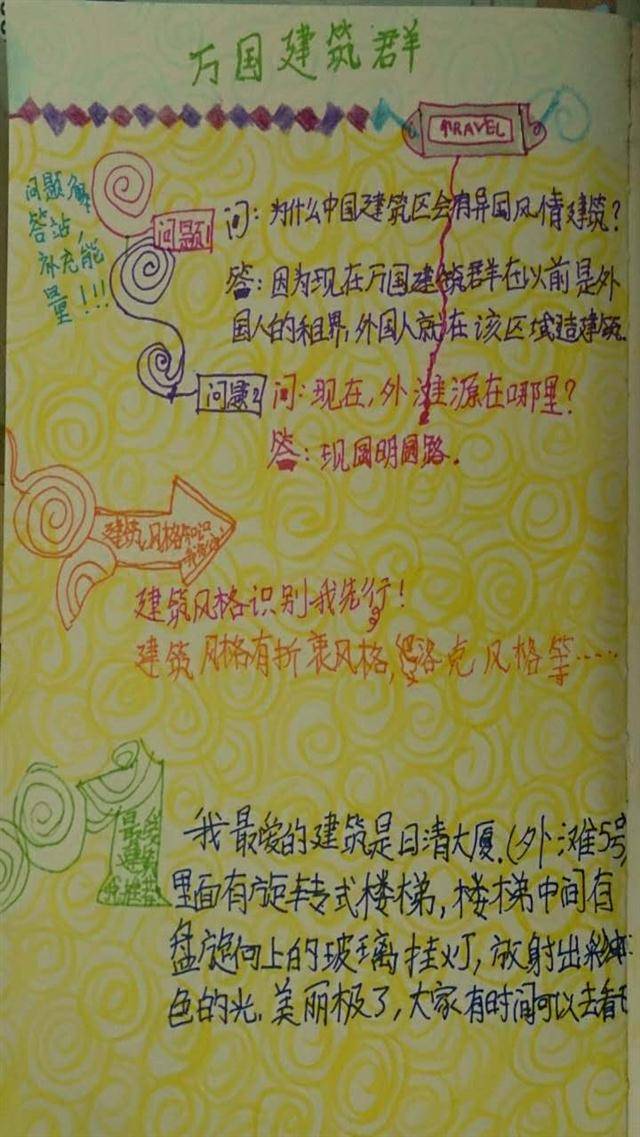 万国建筑群
TRAVEL
问题解
答站，
补充能
量！！！
问题1
问：为什么中国建筑区会有异国风情建筑？
答：因为现在万国建筑群在以前是外
国人的租界，外国人就在该区域造建筑.
问题2
问：现在，外滩源在哪里？
答：现圆明园路.
建筑风格知识
建筑风格识别我先行！
建筑风格有折衷风格，洛克风格等……
最美
建筑
我推荐
我最爱的建筑是日清大厦.（外滩5号）
里面有旋转式楼梯，楼梯中间有
盘旋向上的玻璃挂灯，放射出彩
色的光.美丽极了，大家有时间可以去看